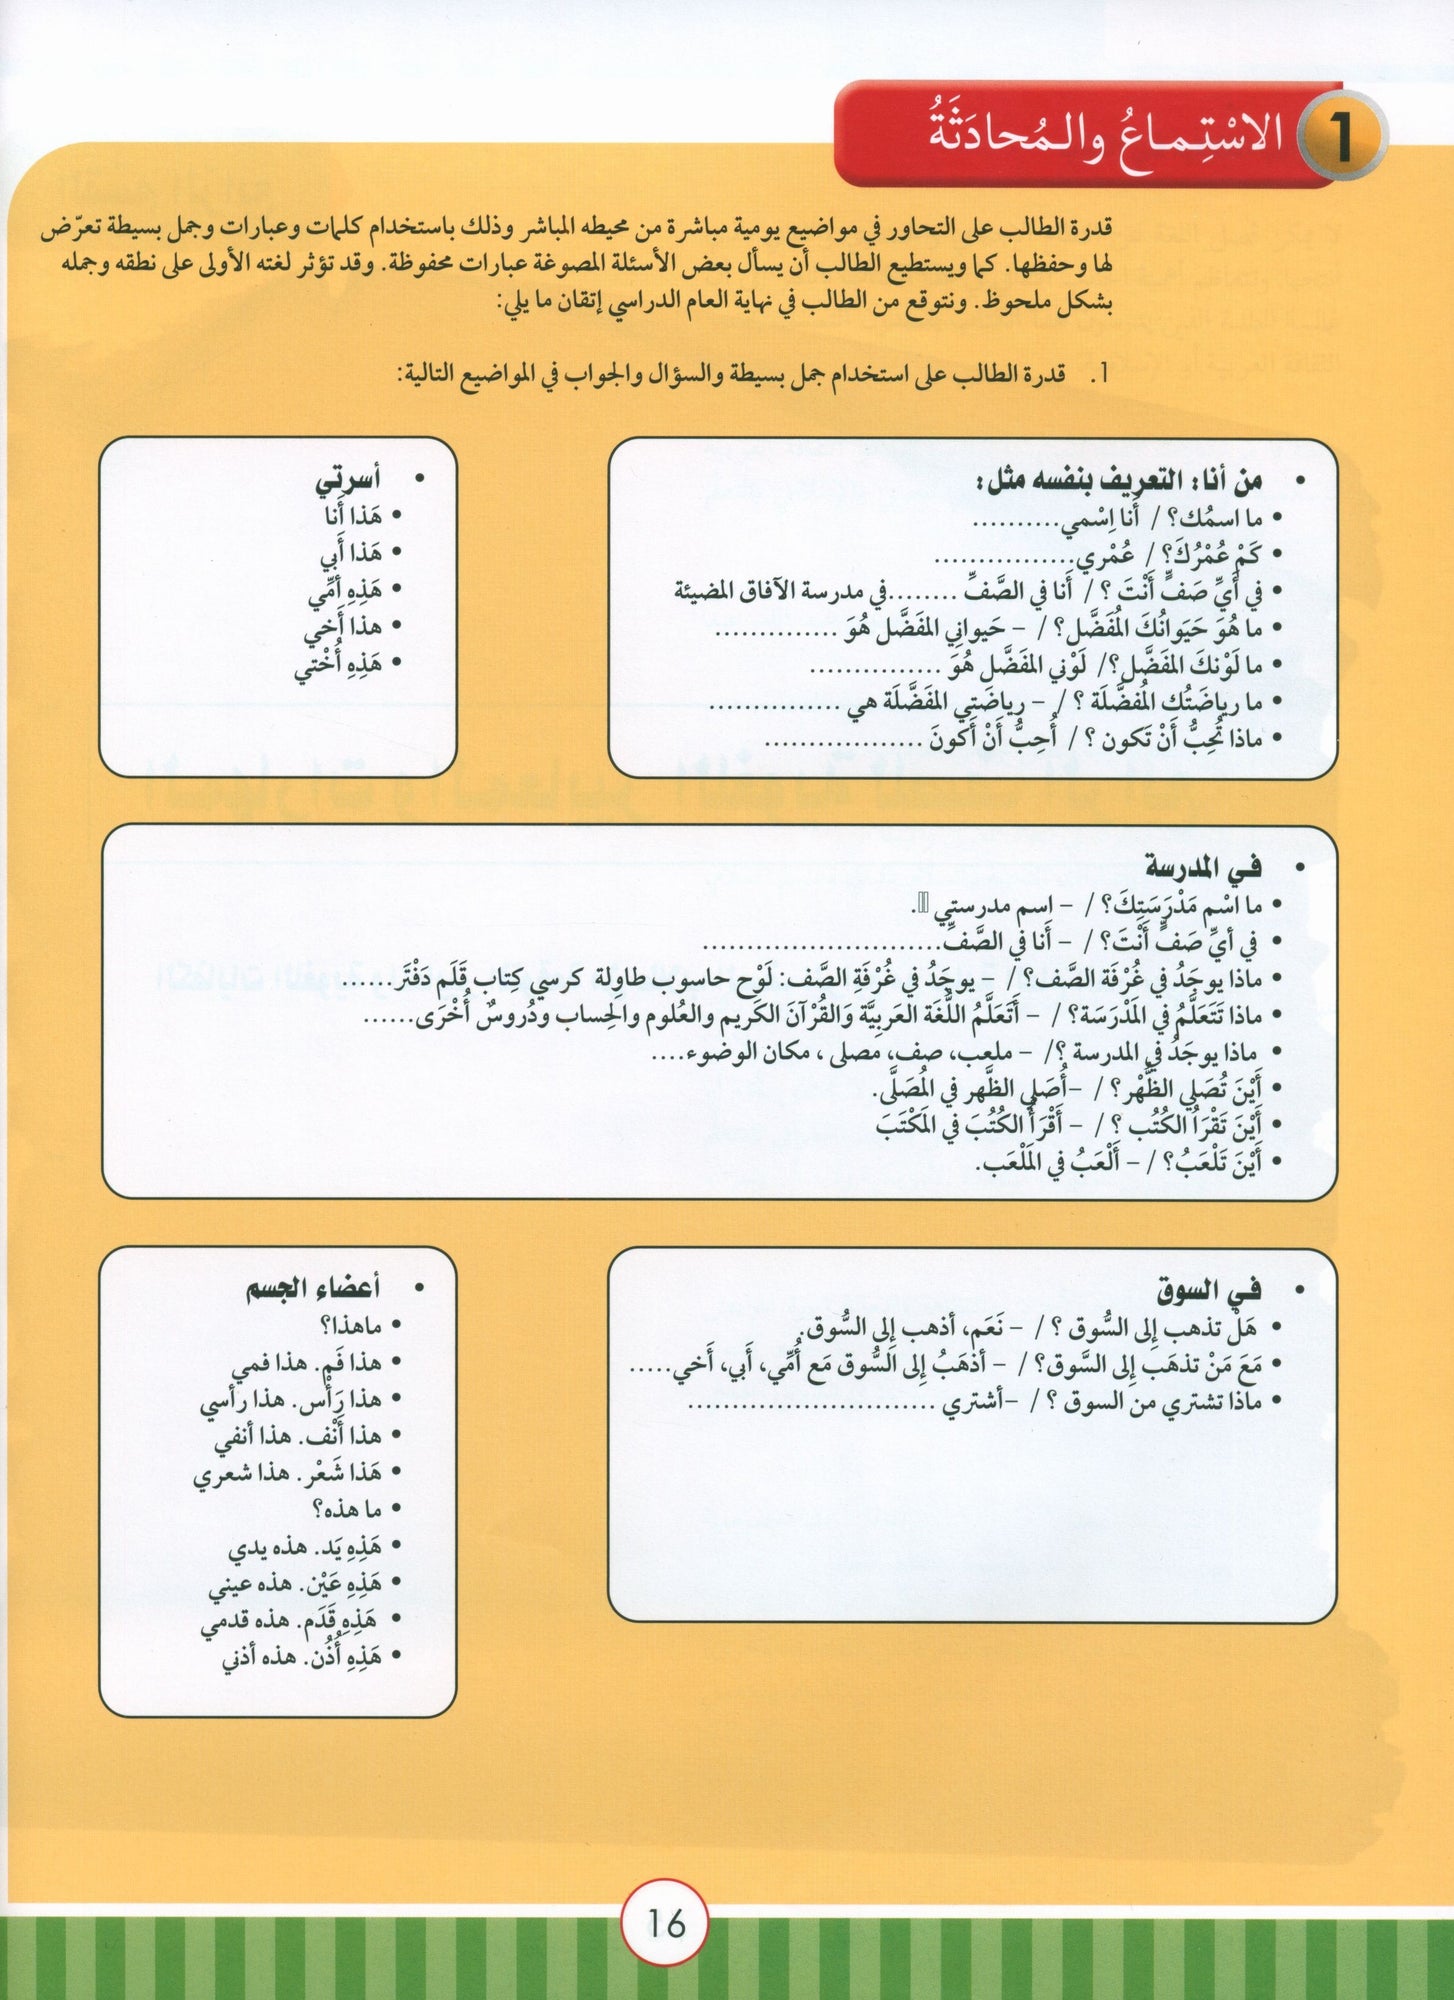 1 الاسْتِماعُ والمُحادَثَةُ
قدرة الطالب على التحاور في مواضيع يومية مباشرة من محيطه المباشر وذلك باستخدام كلمات وعبارات وجمل بسيطة تعرّض
لها وحفظها. كما ويستطيع الطالب أن يسأل بعض الأسئلة المصوغة عبارات محفوظة. وقد تؤثر لغته الأولى على نطقه وجمله
بشكل ملحوظ. ونتوقع من الطالب في نهاية العام الدراسي إتقان ما يلي:
1. قدرة الطالب على استخدام جمل بسيطة والسؤال والجواب في المواضيع التالية:
• من أنا: التعريف بنفسه مثل:
• ما اسمُك؟ / أَنا اِسْمي..........
• كَمْ عُمْرُكَ؟ / عُمْري................
• في أَيِّ صَفٍّ أَنْتَ ؟ / أَنا في الصَّفِّ ........في مدرسة الآفاق المضيئة
• ما هُوَ حَيَوانُكَ المُفَضَّل؟ / – حَيواني المفَضَّل هُوَ ..............
• ما لَوْنكَ المفَضَّل؟/ لَوْني المفَضَّل هُوَ ...............
• ما رياضَتُك المُفضَّلَة ؟ / – رياضَتي المفَضَّلَة هي ...............
• ماذا تُحِبُّ أَنْ تَكون ؟ / أُحِبُّ أَنْ أَكونَ ..................
• أسرتي
• هَذا أَنا
• هَذا أَبي
• هَذِهِ أمِّي
• هذا أَخي
• هَذِهِ أُخْتي
• في المدرسة
• ما اسْم مَدْرَسَتِكَ؟ / – اسم مدرستي .
• في أيِّ صَفٍّ أَنْتَ؟ / – أَنا في الصَّفِّ...........................
• ماذا يوجَدُ في غُرْفَة الصَّف؟ / – يوجَدُ في غُرْفَةِ الصَّف: لَوْح حاسوب طاوِلة كرسي كِتاب قَلَم دَفْتَر......
• ماذا تَتَعَلَّمُ في المَدْرَسَة؟ / – أَتَعَلَّمُ اللُّغَة العَرَبِيَّة وَالقُرْآنَ الكَريم والعُلوم والحِساب ودُروسٌ أُخْرَى......
• ماذا يوجَدُ في المدرسة ؟/ – ملعب، صف، مصلى ، مكان الوضوء....
• أَيْنَ تُصَلي الظُّهْر؟ / –أُصَلي الظَّهر في المُصَلَّى.
• أَيْنَ تَقْرَأ الكُتُب ؟ / – أَقْرَأُ الكُتُبَ في المَكْتَبَ
• أَيْنَ تَلْعَبُ؟ / – أَلْعَبُ في المَلْعَب.
• في السوق
• هَلْ تذهب إِلى السُّوق ؟ / – نَعَم، أذهب إِلى السُّوق.
• مَعَ مَنْ تذهَب إِلى السَّوق؟ / – أذهَبُ إِلى السُّوق مَع أُمِّي، أَبي، أَخي.....
• ماذا تشتري من السوق ؟ / –أشتري ............................
• أعضاء الجسم
• ماهذا؟
• هذا فَم. هذا فمي
• هذا رَأْس. هذا رأسي
• هذا أَنْف. هذا أنفي
• هَذا شَعْر. هذا شعري
• ما هذه؟
• هَذِهِ يَد. هذه يدي
• هَذِهِ عَيْن. هذه عيني
• هَذِهِ قَدَم. هذه قدمي
• هَذِهِ أُذُن. هذه أذني
16